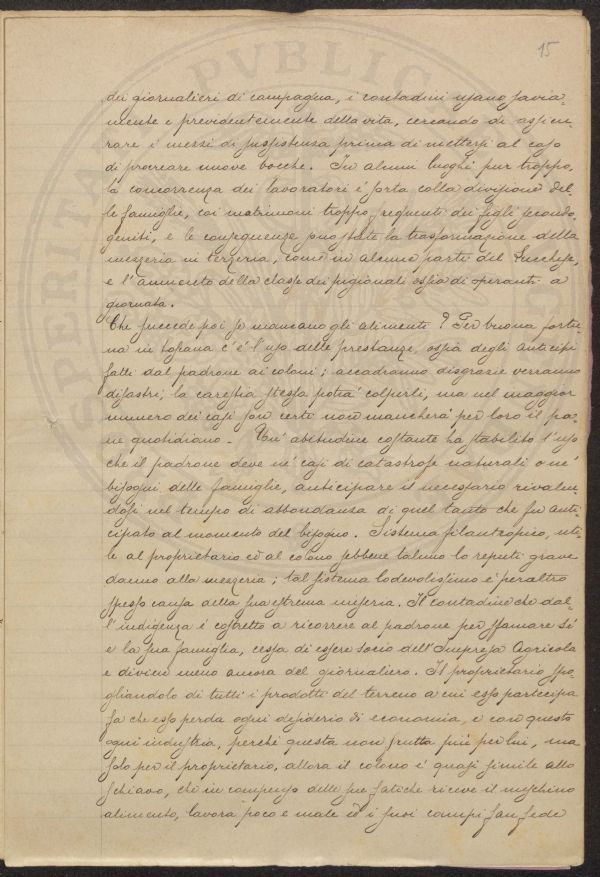 15
dei giornalieri di campagna, i contadini usano savia-
mente e previdentemente della vita, cercando di assicu-
rare i mezzi di sussistenza prima di mettersi al caso
di procreare nuove bocche. In alcuni luoghi pur troppo,
la concorrenza dei lavoratori è sorta colla divisione del-
le famiglie, coi matrimoni troppo frequenti dei figli secondo-
geniti, e le conseguenze sono state la trasformazione della
mezzeria in terzeria, come in alcune parti del Lucchese,
e l'aumento della classe dei pigionali ossia di operanti a
giornata.
Che succede poi se mancano gli alimenti? Per buona fortu-
na in toscana c'è l'uso delle prestanze, ossia degli anticipi
fatti dal padrone ai coloni; accadranno disgrazie verranno
disastri, la carestia stessa potrà colpirli, ma nel maggior
numero dei casi son certi non mancherà per loro il pa-
ne quotidiano - Un' abitudine costante ha stabilito l'uso
che il padrone deve ne' casi di catastrofe naturali o ne'
bisogni delle famiglie, anticipare il necessario rivalen-
dosi nel tempo di abbondanza di quel tanto che fu anti-
cipato al momento del bisogno. Sistema filantropico, uti-
le al proprietario ed al colono sebbene taluno lo reputi grave
danno alla mezzeria; tal sistema lodevolissimo è peraltro
spesso causa della sua estrema miseria. Il contadino che dal-
l'indigenza è costretto a ricorrere al padrone per sfamare sé
e la sua famiglia, cessa di essere socio dell'Impresa Agricola
e divien meno ancora del giornaliero. Il proprietario spo-
gliandolo di tutti i prodotti del terreno a cui esso partecipa
fa che esso perda ogni desiderio di economia, e con questo
ogni industria, perchè questa non frutta più per lui, ma
solo per il proprietario, allora il colono è quasi simile allo
schiavo, che in compenso delle sue fatiche riceve il meschino
alimento, lavora poco e male ed i suoi campi fan fede